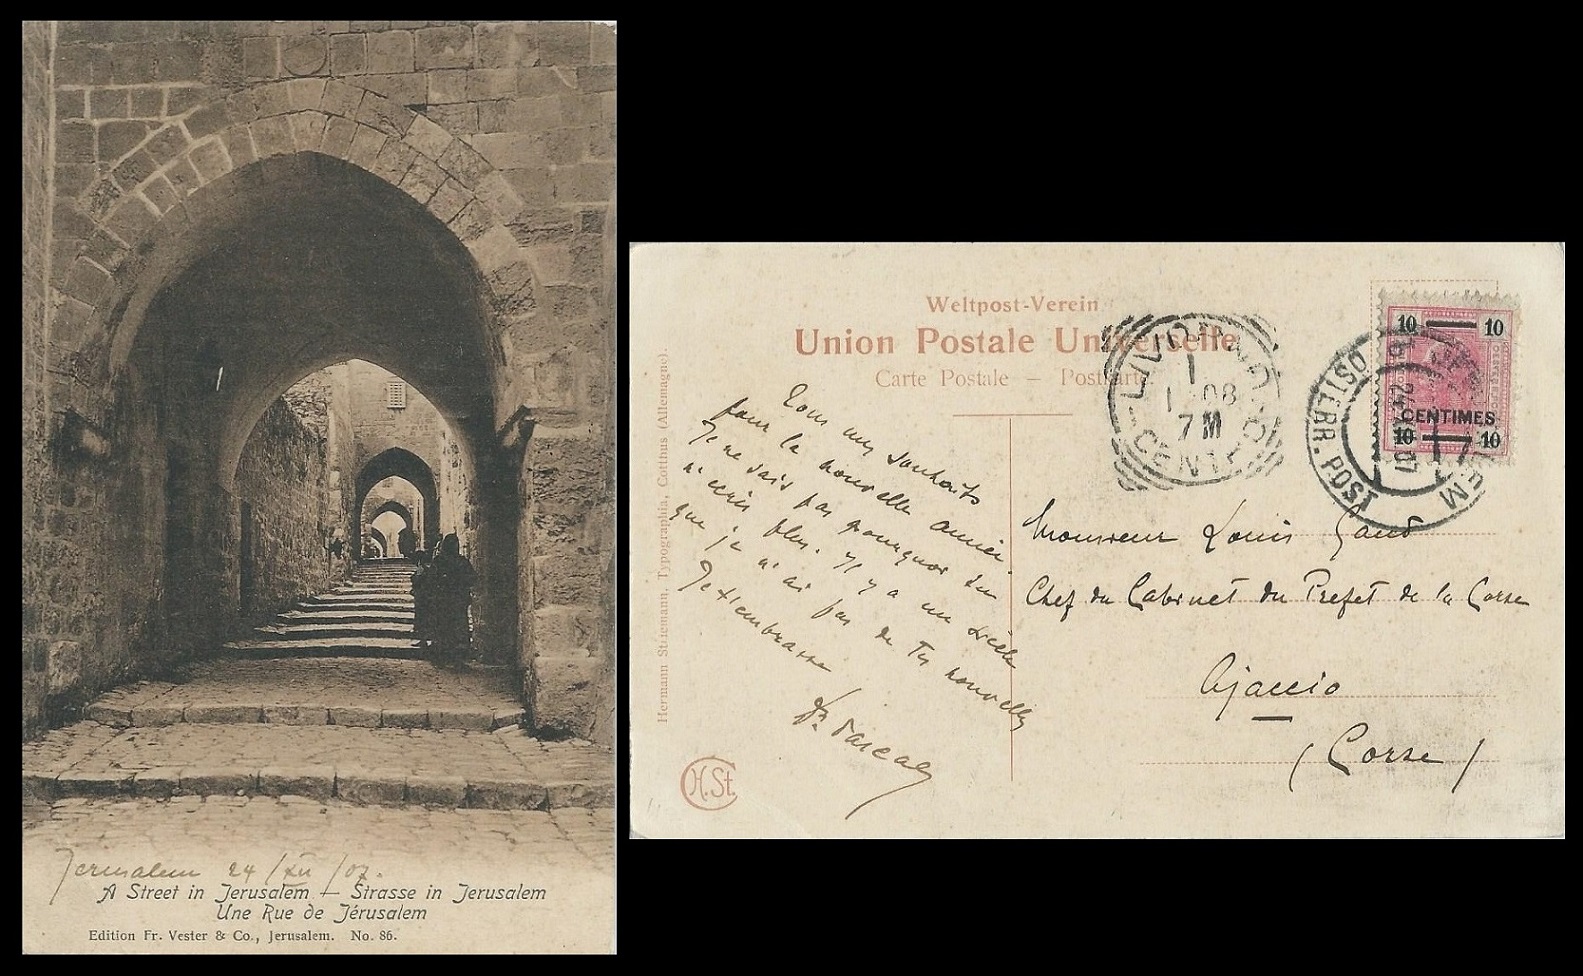 Jerusalem 24/XII/07.
A Street in Jerusalem — Strasse in Jerusalem
Une Rue de Jérusalem
Edition Fr. Vester & Co., Jerusalem. No. 86.
Weltpost-Verein
Union Postale Universelle
Carte Postale — Postkarte.
Hermann Striemann, Typographia, Cottbus (Allemagne).
H.St.
10 10
CENTIMES
10 10
ÖSTERR. POST
24 XII 07
LIVORNO
1
1 08
7 M
CENTRO
Tous mes souhaits
pour la nouvelle année.
Je ne sais pas pourquoi tu
n'écris plus. Il y a un siècle
que je n'ai pas de tes nouvelles
Je t'embrasse
Monsieur Louis
Chef du Cabinet du Prefet de la Corse
Ajaccio
(Corse)